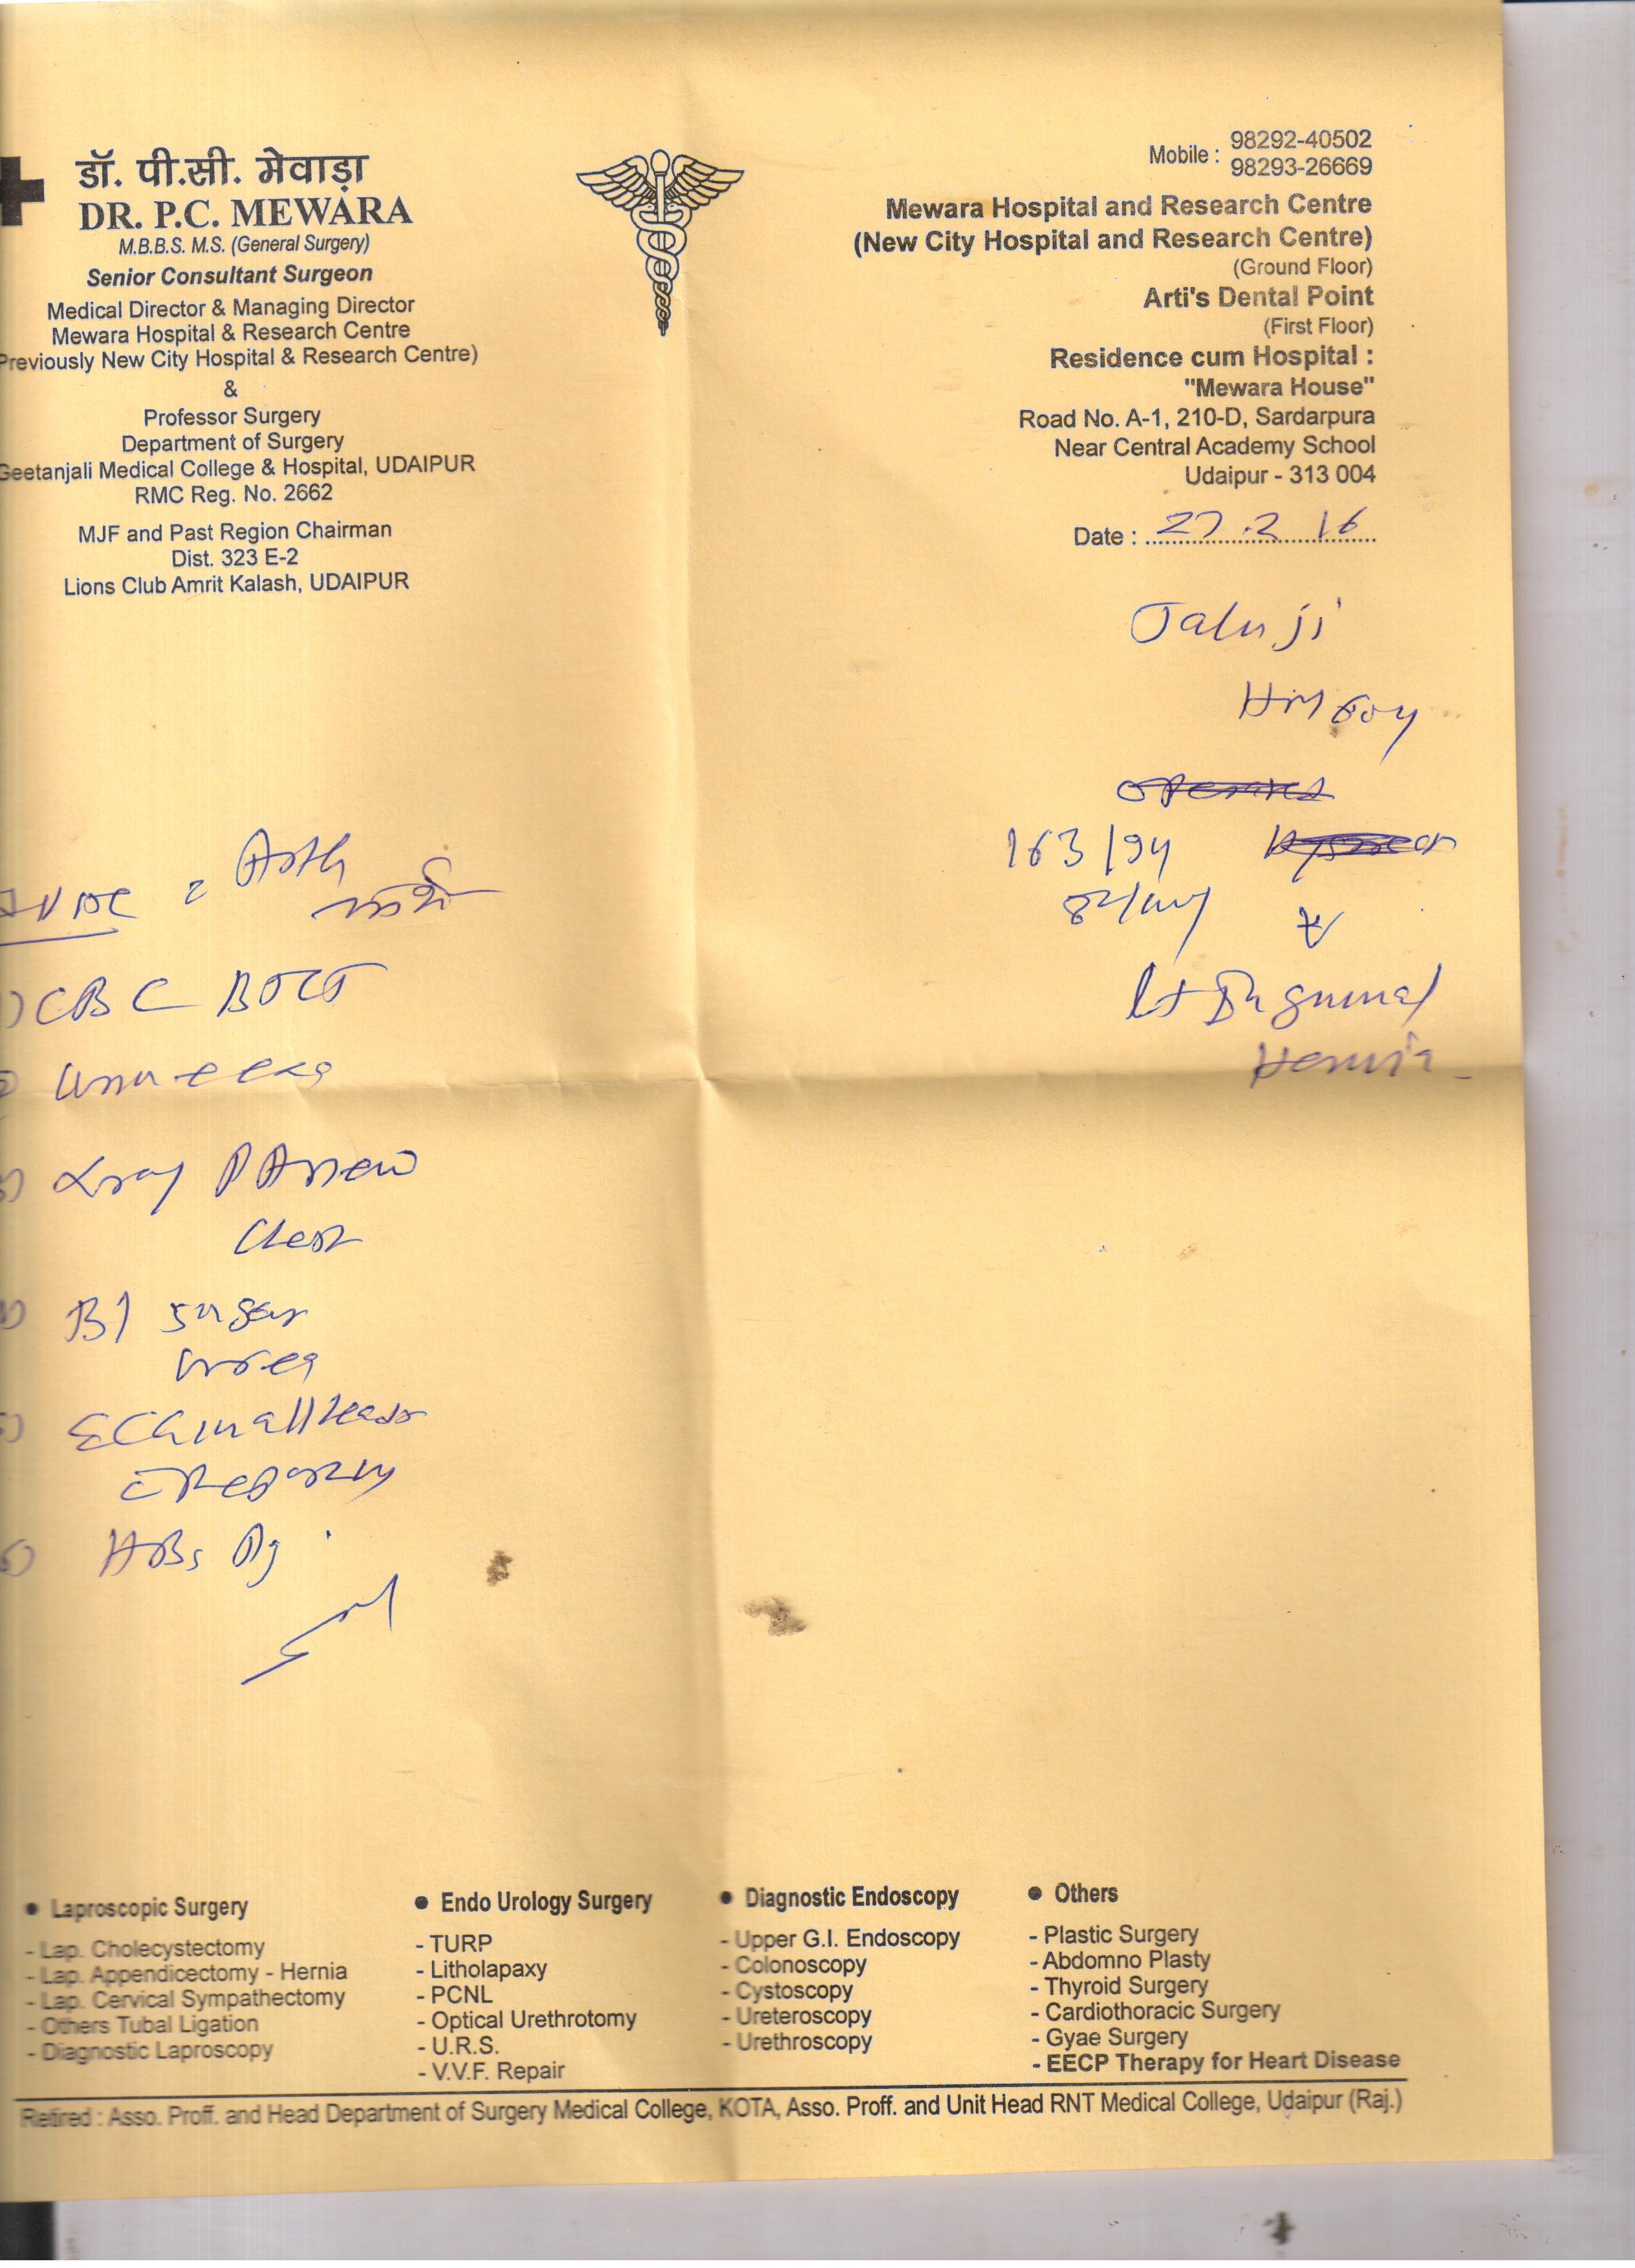 डॉ. पी.सी. मेवाड़ा
DR. P.C. MEWARA
M.B.B.S. M.S. (General Surgery)
Senior Consultant Surgeon
Medical Director & Managing Director
Mewara Hospital & Research Centre
Previously New City Hospital & Research Centre)
&
Professor Surgery
Department of Surgery
Geetanjali Medical College & Hospital, UDAIPUR
RMC Reg. No. 2662
MJF and Past Region Chairman
Dist. 323 E-2
Lions Club Amrit Kalash, UDAIPUR
Mobile : 98292-40502
98293-26669
Mewara Hospital and Research Centre
(New City Hospital and Research Centre)
(Ground Floor)
Arti's Dental Point
(First Floor)
Residence cum Hospital :
"Mewara House"
Road No. A-1, 210-D, Sardarpura
Near Central Academy School
Udaipur - 313 004
Date : 27.2 16
Jalu ji
HM 60y
163/94
Lt Inguinal
Hernia
Arth
CBC BTCT
Xray PA view
Chest
Bl sugar
urea
ECG in all leads
Reporting
HBs Ag
● Laproscopic Surgery
- Lap. Cholecystectomy
- Lap. Appendicectomy - Hernia
- Lap. Cervical Sympathectomy
- Others Tubal Ligation
- Diagnostic Laproscopy
● Endo Urology Surgery
- TURP
- Litholapaxy
- PCNL
- Optical Urethrotomy
- U.R.S.
- V.V.F. Repair
● Diagnostic Endoscopy
- Upper G.I. Endoscopy
- Colonoscopy
- Cystoscopy
- Ureteroscopy
- Urethroscopy
● Others
- Plastic Surgery
- Abdomno Plasty
- Thyroid Surgery
- Cardiothoracic Surgery
- Gyae Surgery
- EECP Therapy for Heart Disease
Retired : Asso. Proff. and Head Department of Surgery Medical College, KOTA, Asso. Proff. and Unit Head RNT Medical College, Udaipur (Raj.)